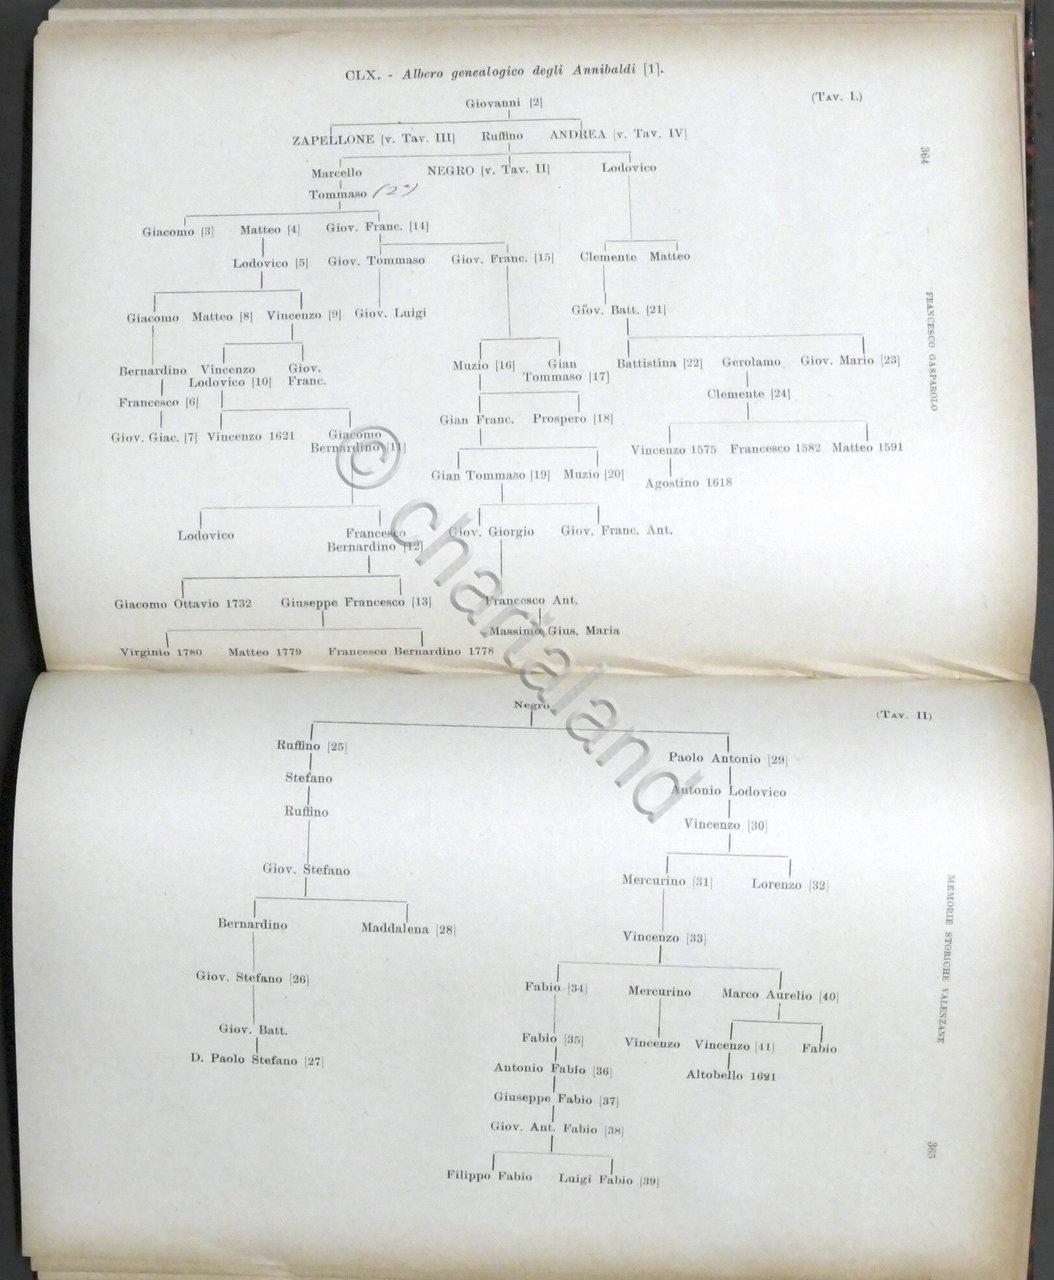 CLX. - Albero genealogico degli Annibaldi [1].
(TAV. I.)
Giovanni [2]
ZAPELLONE [v. Tav. III] Ruffino ANDREA [v. Tav. IV]
Marcello NEGRO [v. Tav. II] Lodovico
Tommaso (2ª)
Giacomo [3] Matteo [4] Giov. Franc. [14]
Lodovico [5] Giov. Tommaso Giov. Franc. [15] Clemente Matteo
Giacomo Matteo [8] Vincenzo [9] Giov. Luigi Giov. Batt. [21]
Bernardino Vincenzo Giov. Muzio [16] Gian Battistina [22] Gerolamo Giov. Mario [23]
Lodovico [10] Franc. Tommaso [17]
Francesco [6] Clemente [24]
Gian Franc. Prospero [18]
Giov. Giac. [7] Vincenzo 1621 Giacomo
Bernardino [11] Vincenzo 1575 Francesco 1582 Matteo 1591
Gian Tommaso [19] Muzio [20] Agostino 1618
Lodovico Francesco Giov. Giorgio Giov. Franc. Ant.
Bernardino [12]
Giacomo Ottavio 1732 Giuseppe Francesco [13] Francesco Ant.
Massimo Gius. Maria
Virginio 1780 Matteo 1779 Francesco Bernardino 1778
364
FRANCESCO GASPAROLO
(TAV. II)
Negro
Ruffino [25] Paolo Antonio [29]
Stefano Antonio Lodovico
Ruffino Vincenzo [30]
Giov. Stefano Mercurino [31] Lorenzo [32]
Bernardino Maddalena [28] Vincenzo [33]
Giov. Stefano [26] Fabio [34] Mercurino Marco Aurelio [40]
Giov. Batt. Fabio [35] Vincenzo Vincenzo [41] Fabio
D. Paolo Stefano [27] Antonio Fabio [36] Altobello 1621
Giuseppe Fabio [37]
Giov. Ant. Fabio [38]
Filippo Fabio Luigi Fabio [39]
MEMORIE STORICHE VALENZANE
365
© chartaland